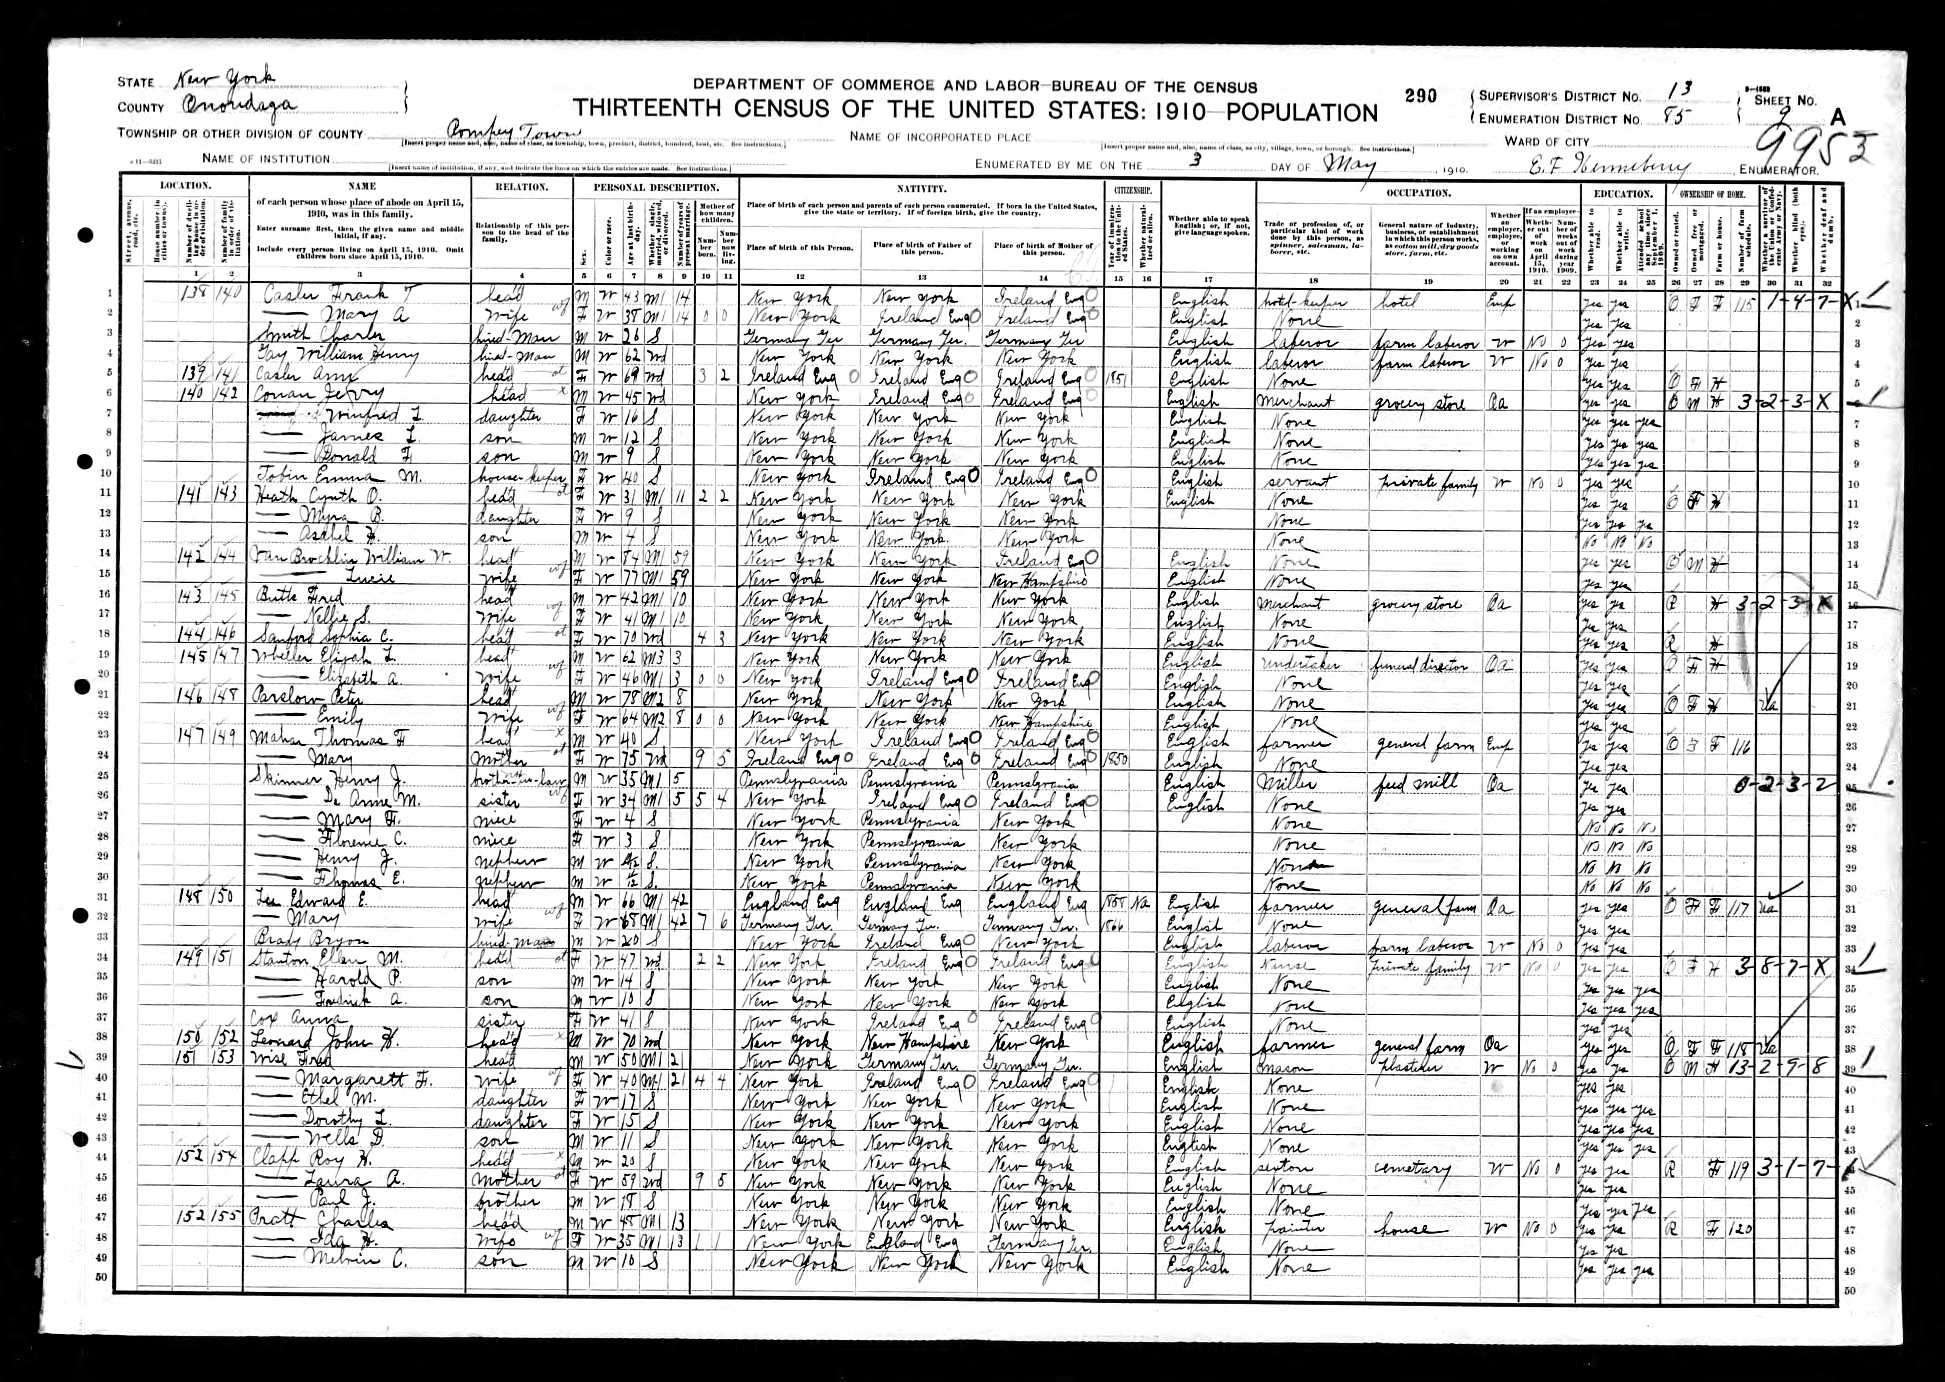 STATE New York
COUNTY Onondaga
TOWNSHIP OR OTHER DIVISION OF COUNTY Pompey Town
[Insert proper name and, also, name of class, as township, town, precinct, district, hundred, beat, etc. See instructions.]
NAME OF INSTITUTION
[Insert name of institution, if any, and indicate the lines on which the entries are made. See instructions.]
DEPARTMENT OF COMMERCE AND LABOR—BUREAU OF THE CENSUS
THIRTEENTH CENSUS OF THE UNITED STATES: 1910—POPULATION
290
NAME OF INCORPORATED PLACE
[Insert proper name and, also, name of class, as city, village, town, or borough. See instructions.]
ENUMERATED BY ME ON THE 3 DAY OF May, 1910.
SUPERVISOR'S DISTRICT No. 13
ENUMERATION DISTRICT No. 85
SHEET No. 9 A
WARD OF CITY
9953
E. F. Henneberry, ENUMERATOR.
LOCATION. NAME RELATION. PERSONAL DESCRIPTION. NATIVITY. CITIZENSHIP. OCCUPATION. EDUCATION. OWNERSHIP OF HOME.
1 138 140 Casler Frank T head M W 43 M1 14 New York New York Ireland Eng English hotel-keeper hotel Emp yes yes O F F 115 1-4-7-X
2 — Mary A wife F W 38 M1 14 0 0 New York Ireland Eng Ireland Eng English None yes yes
3 Smith Charles hired-man M W 26 S Germany Ger Germany Ger. Germany Ger English laborer farm laborer W No 0 yes yes
4 Gay William Henry hired-man M W 62 Wd New York New York New York English laborer farm laborer W No 0 yes yes
5 139 141 Casler Ann head F W 69 Wd 3 2 Ireland Eng Ireland Eng Ireland Eng 1851 English None yes yes O F H
6 140 142 Conan Jerry head M W 45 Wd New York Ireland Eng Ireland Eng English Merchant grocery store Oa yes yes O M H 3-2-3-X
7 — Winifred L. daughter F W 16 S New York New York New York English None yes yes yes
8 — James L. son M W 12 S New York New York New York English None yes yes yes
9 — Donald F son M W 9 S New York New York New York English None yes yes yes
10 Tobin Emma M. house-keeper F W 40 S New York Ireland Eng Ireland Eng English servant private family W No 0 yes yes
11 141 143 Heath Cynth O. head F W 31 M1 11 2 2 New York New York New York English None yes yes O F H
12 — Myra B. daughter F W 9 S New York New York New York None yes yes yes
13 — Asahel H. son M W 4 S New York New York New York None No No No
14 142 144 Van Brocklin William W. head M W 84 M1 59 New York New York Ireland Eng English None yes yes O M H
15 — Lucie wife F W 77 M1 59 New York New York New Hampshire English None yes yes
16 143 145 Butts Fred head M W 42 M1 10 New York New York New York English Merchant grocery store Oa yes yes R H 3-2-3-X
17 — Nellie S. wife F W 41 M1 10 New York New York New York English None yes yes
18 144 146 Sanford Sophia C. head F W 70 Wd 4 3 New York New York New York English None yes yes R H
19 145 147 Wheller Elijah L head M W 62 M3 3 New York New York New York English undertaker funeral director Oa yes yes O F H
20 — Elizabeth A. wife F W 46 M1 3 0 0 New York Ireland Eng Ireland Eng English None yes yes
21 146 148 Parslow Peter head M W 78 M2 8 New York New York New York English None yes yes O F H Ua
22 — Emily wife F W 64 M2 8 0 0 New York New York New Hampshire English None yes yes
23 147 149 Mahar Thomas F head M W 40 S New York Ireland Eng Ireland Eng English farmer general farm Emp yes yes O F F 116
24 — Mary Mother F W 75 Wd 9 5 Ireland Eng Ireland Eng Ireland Eng 1850 English None yes yes
25 Skinner Henry J. brother-in-law M W 35 M1 5 Pennsylvania Pennsylvania Pennsylvania English Miller feed mill Oa yes yes 0-2-3-2
26 — De Anne M. sister F W 34 M1 5 5 4 New York Ireland Eng Ireland Eng English None yes yes
27 — Mary F. niece F W 4 S New York Pennsylvania New York None No No No
28 — Florence C. niece F W 3 S New York Pennsylvania New York None No No No
29 — Henry J. nephew M W S. New York Pennsylvania New York None No No No
30 — Thomas E. nephew M W S. New York Pennsylvania New York None No No No
31 148 150 Lee Edward E. head M W 66 M1 42 England Eng England Eng England Eng 1858 Na English farmer general farm Oa yes yes O F F 117 Ua
32 — Mary wife F W 68 M1 42 7 6 Germany Ger. Germany Ger. Germany Ger. 1866 English None yes yes
33 Brady Bryon hired-man M W 20 S New York Ireland Eng New York English laborer farm laborer W No 0 yes yes
34 149 151 Stanton Ellen M. head F W 47 Wd 2 2 New York Ireland Eng Ireland Eng English Nurse private family W No 0 yes yes O F H 3-8-7-X
35 — Harold P. son M W 14 S New York New York New York English None yes yes yes
36 — Fredrick A. son M W 10 S New York New York New York English None yes yes yes
37 Cox Anna sister F W 41 S New York Ireland Eng Ireland Eng English None yes yes
38 150 152 Leonard John H. head M W 70 Wd New York New Hampshire New York English farmer general farm Oa yes yes O F F 118 Ua
39 151 153 Wise Fred head M W 50 M1 21 New York Germany Ger. Germany Ger. English Mason Plasterer W No 0 yes yes O M H 13-2-9-8
40 — Margarett F. wife F W 40 M1 21 4 4 New York Ireland Eng Ireland Eng English None yes yes
41 — Ethel M. daughter F W 17 S New York New York New York English None yes yes yes
42 — Dorothy L. daughter F W 15 S New York New York New York English None yes yes yes
43 — Wells D. son M W 11 S New York New York New York English None yes yes yes
44 152 154 Clapp Roy H. head M W 20 S New York New York New York English sexton cemetary W No 0 yes yes R F 119 3-1-7-
45 — Laura A. Mother F W 59 Wd 9 5 New York New York New York English None yes yes
46 — Paul J. brother M W 18 S New York New York New York English None yes yes yes
47 152 155 Pratt Charles head M W 48 M1 13 New York New York New York English painter house W No 0 yes yes R F 120
48 — Ida H. wife F W 35 M1 13 1 1 New York England Eng Germany Ger. English None yes yes
49 — Melvin C. son M W 10 S New York New York New York English None yes yes yes
50